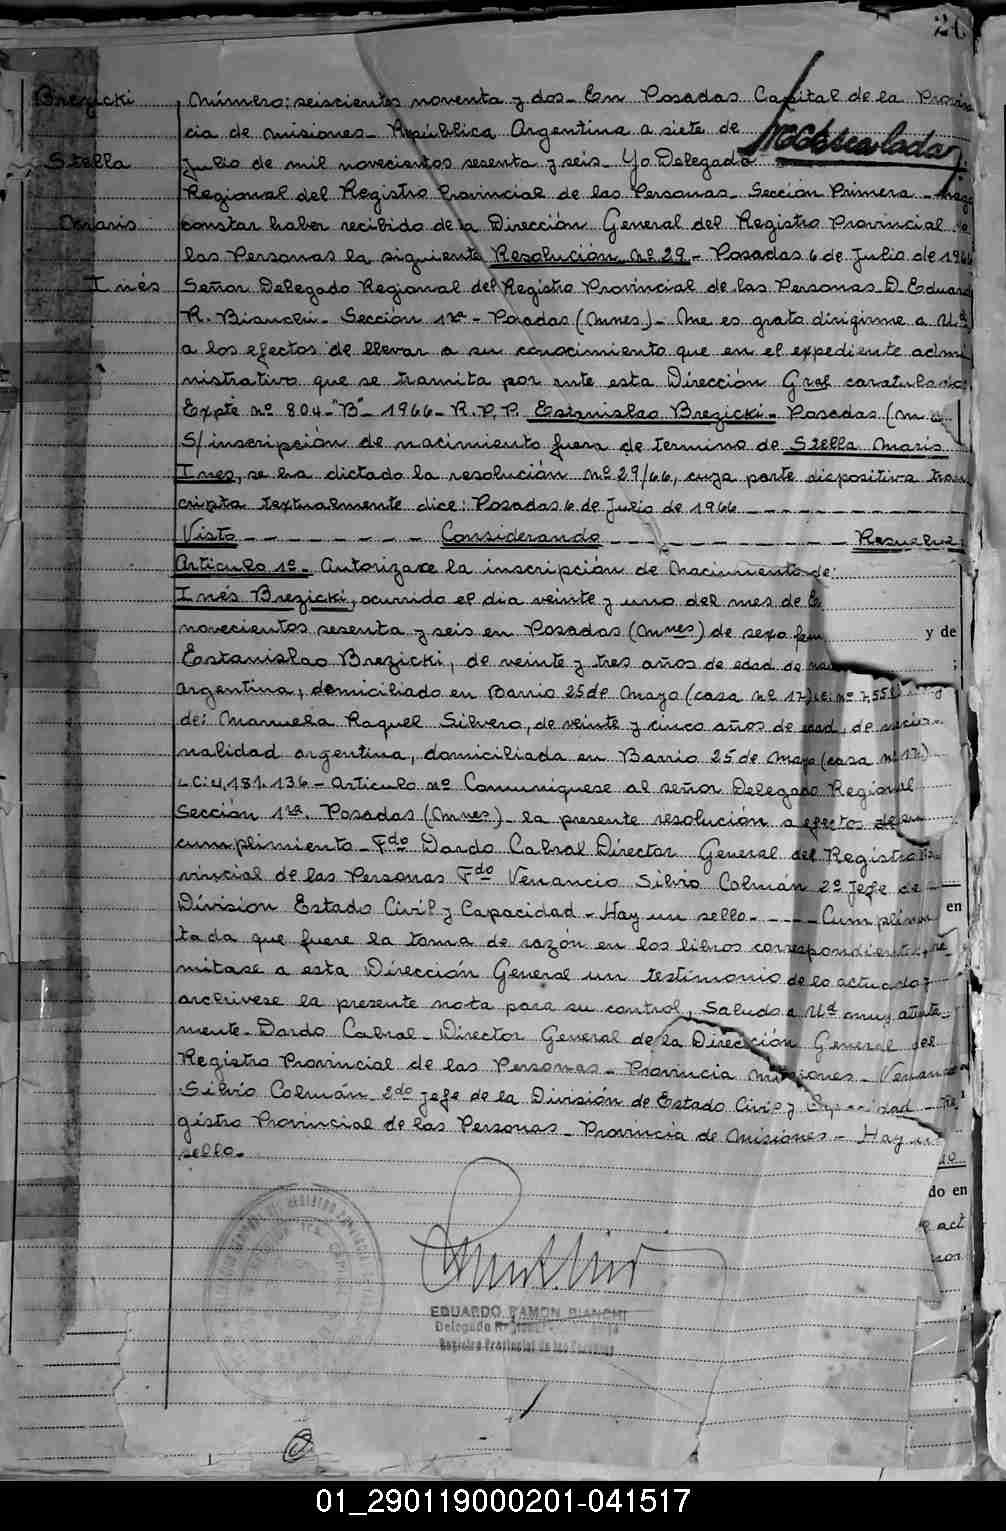 Brezicki
Stella
Maris
Inés
Número: seiscientos noventa y dos_ En Posadas Capital de la Provin
cia de Misiones_ República Argentina a siete de
Julio de mil novecientos sesenta y seis_ Yo Delegado
Regional del Registro Provincial de las Personas_ Sección Primera_ hago
constar haber recibido de la Dirección General del Registro Provincial de
las Personas la siguiente Resolución nº 29_ Posadas 6 de Julio de 1966
Señor Delegado Regional del Registro Provincial de las Personas D. Eduardo
R. Bianchi_ Sección 1ra_ Posadas (Mnes)_ Me es grato dirigirme a Ud
a los efectos de llevar a su conocimiento que en el expediente admi
nistrativo que se tramita por ante esta Dirección Gral caratulado:
Expte nº 804_"B"_1966_R.P.P. Estanislao Brezicki_ Posadas
S/inscripción de nacimiento fuera de termino de Stella Maris
Ines, se ha dictado la resolución nº 29/66, cuya parte dispositiva trans
cripta textualmente dice: Posadas 6 de Julio de 1966
Visto _ _ _ _ _ _ _ Considerando _ _ _ _ _ _ _ _ Resuelve:
Artículo 1º_ Autorizase la inscripción de Nacimiento de:
Inés Brezicki, ocurrido el dia veinte y uno del mes de E
novecientos sesenta y seis en Posadas (Mnes) de sexo fem
y de
Estanislao Brezicki, de veinte y tres años de edad de na
;
argentina, domiciliado en Barrio 25 de Mayo (casa nº 17)
de: Manuela Raquel Silvero, de veinte y cinco años de edad, de nacio
nalidad argentina, domiciliada en Barrio 25 de Mayo (casa nº 17)
LC: 4,181,136_ Artículo nº Comuníquese al señor Delegado Regional
Sección 1ra. Posadas (Mnes)_ la presente resolución a efectos de su
cumplimiento_ Fdo Dardo Cabral Director General del Registro Pro
vincial de las Personas Fdo Venancio Silvio Colmán 2º Jefe de
División Estado Civil y Capacidad_ Hay un sello_ _ _ _ Cumplimen
en
tada que fuere la toma de razón en los libros correspondientes, re
mitase a esta Dirección General un testimonio de lo actuado y
archivese la presente nota para su control, Saludo a Ud muy atenta
mente_ Dardo Cabral_ Director General de la Dirección General del
Registro Provincial de las Personas_ Provincia Misiones_ Venancio
Silvio Colmán 2do Jefe de la División de Estado Civil y Capacidad_ Re
gistro Provincial de las Personas_ Provincia de Misiones_ Hay un
sello_
do en
act
EDUARDO RAMON BIANCHI
Delegado Regional
Registro Provincial de las Personas
01_290119000201-041517